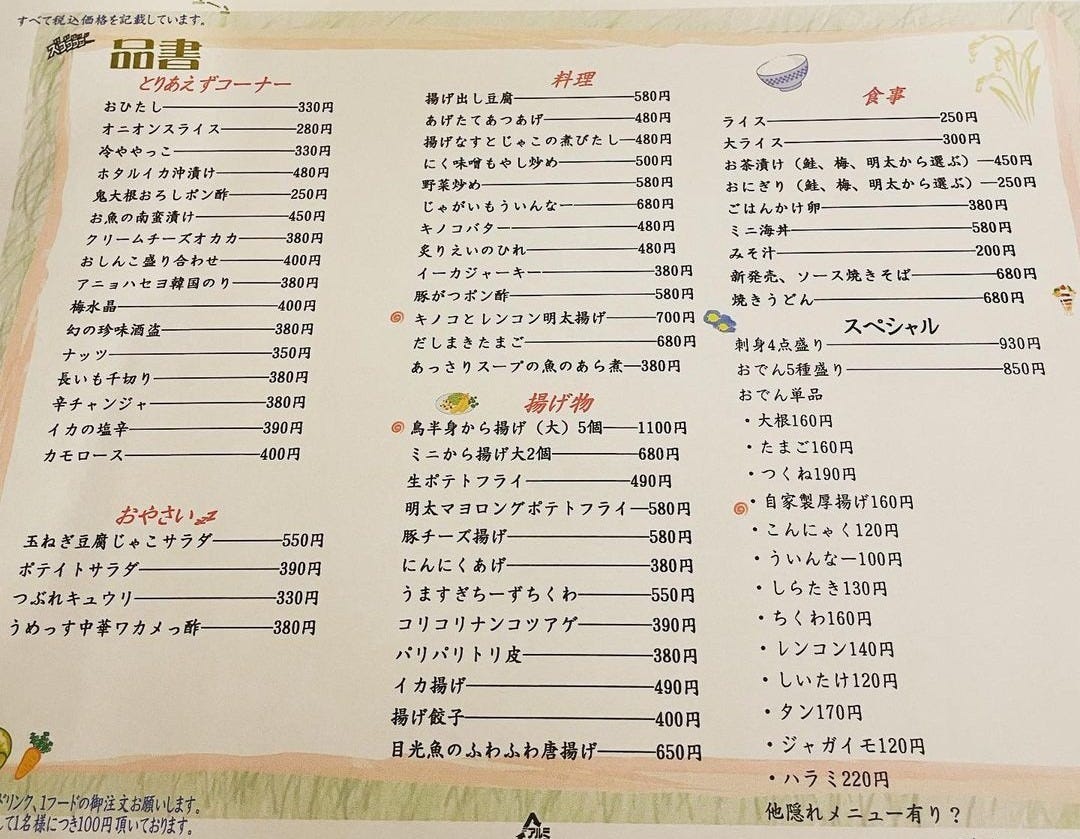 すべて税込価格を記載しています。
品書
とりあえずコーナー
おひたし 330円
オニオンスライス 280円
冷ややっこ 330円
ホタルイカ沖漬け 480円
鬼大根おろしポン酢 250円
お魚の南蛮漬け 450円
クリームチーズオカカ 380円
おしんこ盛り合わせ 400円
アニョハセヨ韓国のり 380円
梅水晶 400円
幻の珍味酒盗 380円
ナッツ 350円
長いも千切り 380円
辛チャンジャ 380円
イカの塩辛 390円
カモロース 400円
おやさい
玉ねぎ豆腐じゃこサラダ 550円
ポテイトサラダ 390円
つぶれキュウリ 330円
うめっす中華ワカメっ酢 380円
料理
揚げ出し豆腐 580円
あげたてあつあげ 480円
揚げなすとじゃこの煮びたし 480円
にく味噌もやし炒め 500円
野菜炒め 580円
じゃがいもういんなー 680円
キノコバター 480円
炙りえいのひれ 480円
イーカジャーキー 380円
豚がつポン酢 580円
キノコとレンコン明太揚げ 700円
だしまきたまご 680円
あっさりスープの魚のあら煮 380円
揚げ物
鳥半身から揚げ（大）5個 1100円
ミニから揚げ大2個 680円
生ポテトフライ 490円
明太マヨロングポテトフライ 580円
豚チーズ揚げ 580円
にんにくあげ 380円
うますぎちーずちくわ 550円
コリコリナンコツアゲ 390円
パリパリトリ皮 380円
イカ揚げ 490円
揚げ餃子 400円
目光魚のふわふわ唐揚げ 650円
食事
ライス 250円
大ライス 300円
お茶漬け（鮭、梅、明太から選ぶ） 450円
おにぎり（鮭、梅、明太から選ぶ） 250円
ごはんかけ卵 380円
ミニ海丼 580円
みそ汁 200円
新発売、ソース焼きそば 680円
焼きうどん 680円
スペシャル
刺身4点盛り 930円
おでん5種盛り 850円
おでん単品
・大根160円
・たまご160円
・つくね190円
・自家製厚揚げ160円
・こんにゃく120円
・ういんなー100円
・しらたき130円
・ちくわ160円
・レンコン140円
・しいたけ120円
・タン170円
・ジャガイモ120円
・ハラミ220円
他隠れメニュー有り？
ドリンク、1フードの御注文お願いします。
して1名様につき100円頂いております。
アルミ